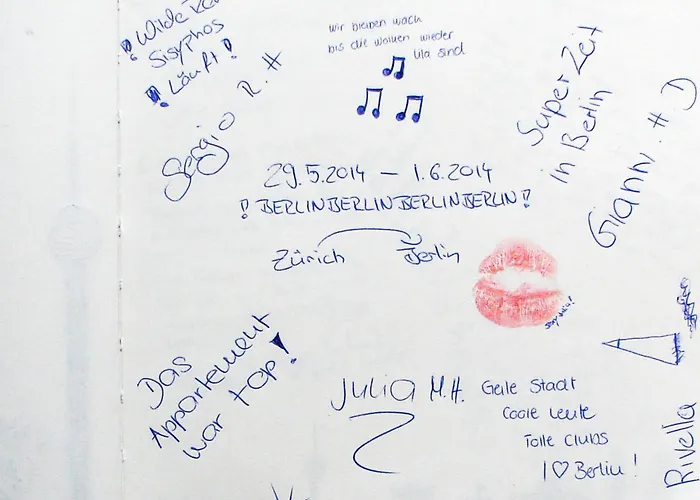 ! Wilde
Sisyphos
! Läuft !
wir bleiben wach
bis die wolken wieder
lila sind
Sergio R. H
Super Zeit
in Berlin
Gianni . H D
29.5.2014 — 1.6.2014
! BERLINBERLINBERLINBERLIN !
Zürich Berlin
Das
Appartement
war top !
Julia M.H.
Geile Stadt
Coole Leute
Tolle Clubs
I ♡ Berlin !
Rivella